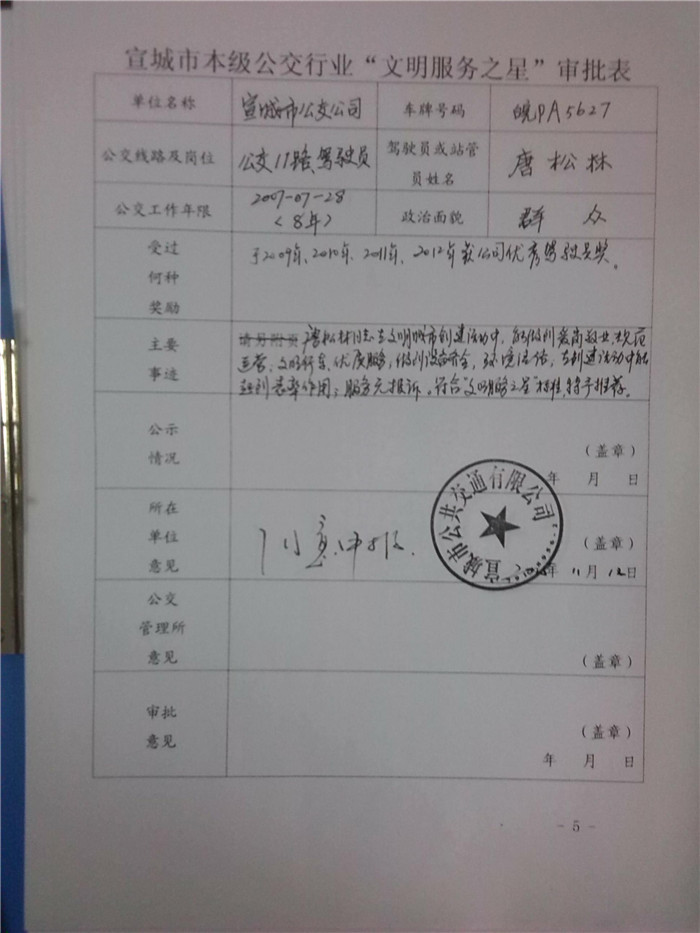 宣城市本级公交行业“文明服务之星”审批表
单位名称 宣城市公交公司 车牌号码 皖PA5627
公交线路及岗位 公交11路、驾驶员 驾驶员或站管员姓名 唐松林
公交工作年限 2007-07-28 (8年) 政治面貌 群众
受过何种奖励 于2009年、2010年、2011年、2012年获公司优秀驾驶员奖。
主要事迹 请另附页 唐松林同志在文明城市创建活动中,能做到爱岗敬业、规范
运营、文明行车、优质服务,做到设备齐全,环境洁佳,在创建活动中能
起到表率作用;服务无投诉。符合“文明服务之星”标准,特予推荐。
公示情况 (盖章)
年 月 日
所在单位意见 同意申报. (盖章)
年11月12日
宣城市公共交通有限公司
公交管理所意见 (盖章)
审批意见 (盖章)
年 月 日
- 5 -